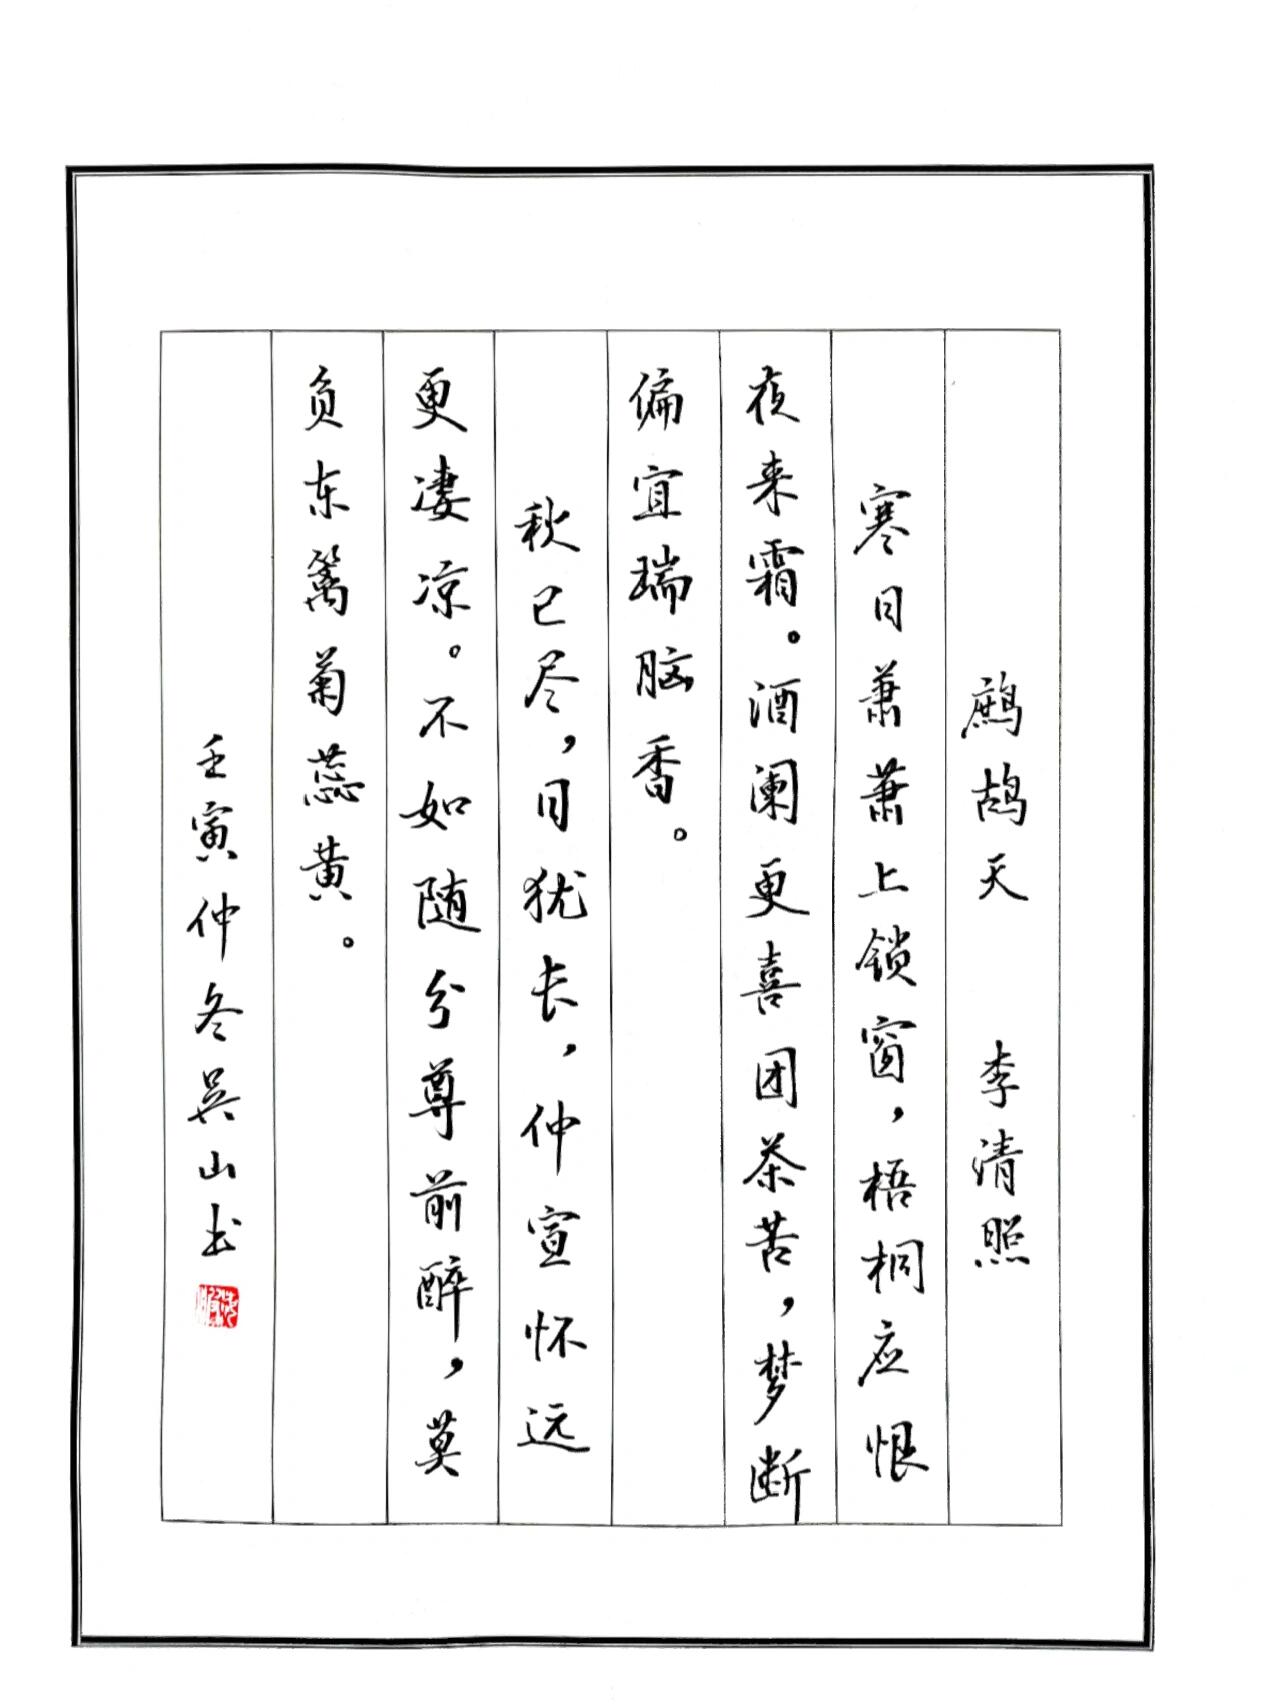 鹧鸪天 李清照
寒日萧萧上锁窗，梧桐应恨
夜来霜。酒阑更喜团茶苦，梦断
偏宜瑞脑香。
秋已尽，日犹长，仲宣怀远
更凄凉。不如随分尊前醉，莫
负东篱菊蕊黄。
壬寅仲冬吴山书